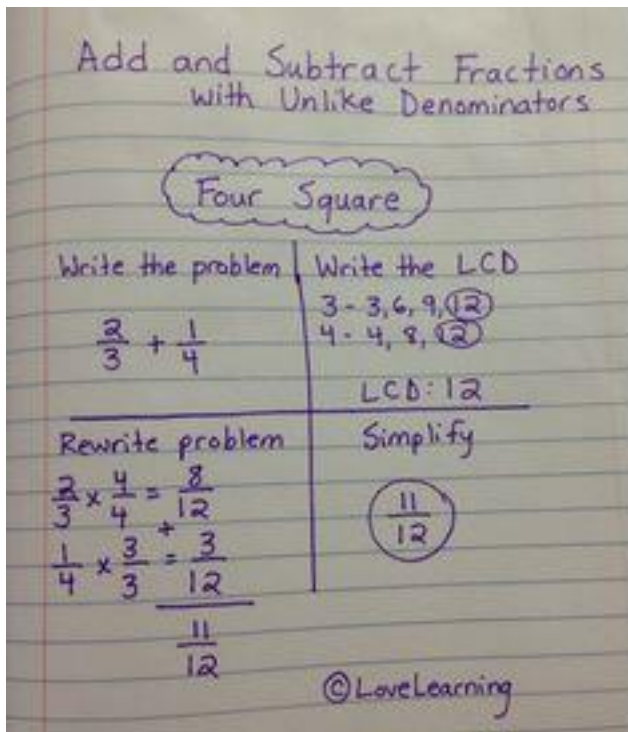 Add and Subtract Fractions
with Unlike Denominators
Four Square
Write the problem
2/3 + 1/4
Write the LCD
3 - 3, 6, 9, 12
4 - 4, 8, 12
LCD: 12
Rewrite problem
2/3 × 4/4 = 8/12
+
1/4 × 3/3 = 3/12
11/12
Simplify
11/12
©LoveLearning